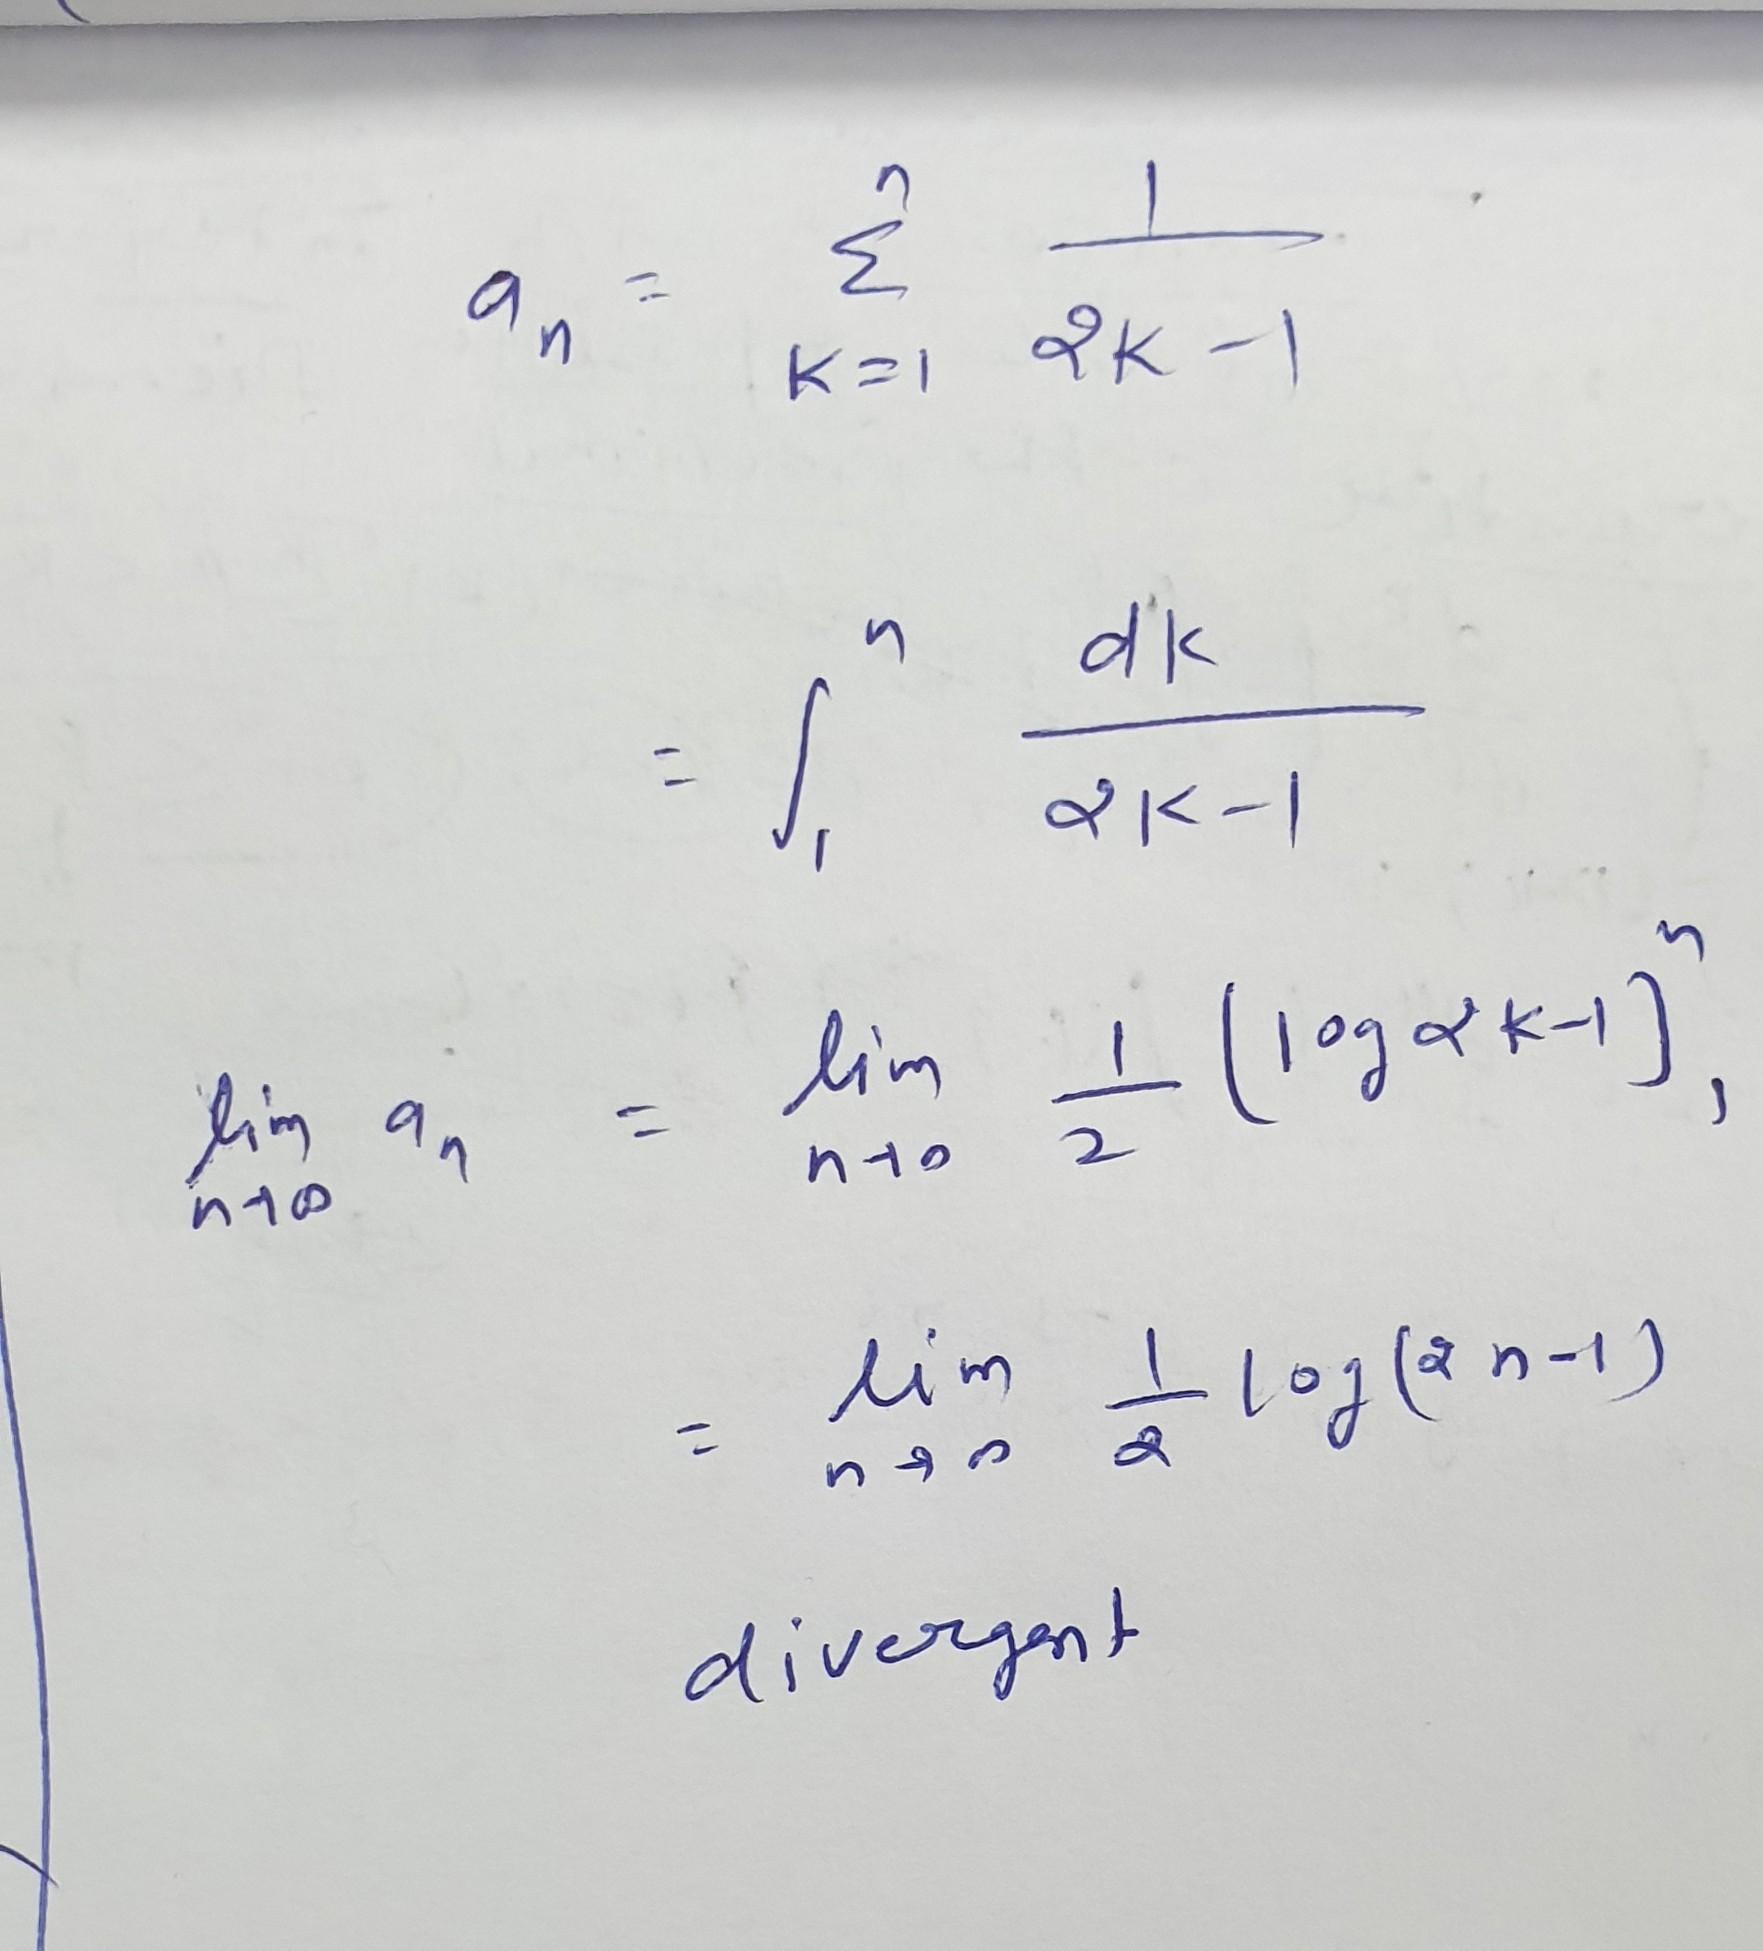 aₙ = Σⁿ_{K=1} 1/(2K-1)
= ∫₁ⁿ dK/(2K-1)
lim_{n→∞} aₙ = lim_{n→∞} 1/2 (log 2K-1]₁ⁿ
= lim_{n→∞} 1/2 log(2n-1)
divergent